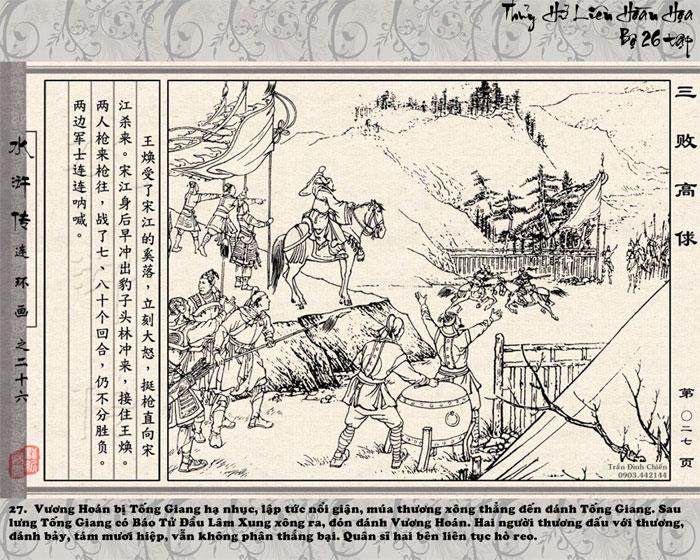 Thủy Hử Liên Hoàn Họa
Bộ 26 tập
三败高俅
王焕受了宋江的奚落，立刻大怒，挺枪直向宋
江杀来。宋江身后早冲出豹子头林冲来，接住王焕。
两人枪来枪往，战了七、八十个回合，仍不分胜负。
两边军士连连呐喊。
水浒传连环画之二十六
第〇二七页
Trần Đình Chiến
0903.442144
27. Vương Hoán bị Tống Giang hạ nhục, lập tức nổi giận, múa thương xông thẳng đến đánh Tống Giang. Sau
lưng Tống Giang có Báo Tử Đầu Lâm Xung xông ra, đón đánh Vương Hoán. Hai người thương đấu với thương,
đánh bảy, tám mươi hiệp, vẫn không phân thắng bại. Quân sĩ hai bên liên tục hò reo.